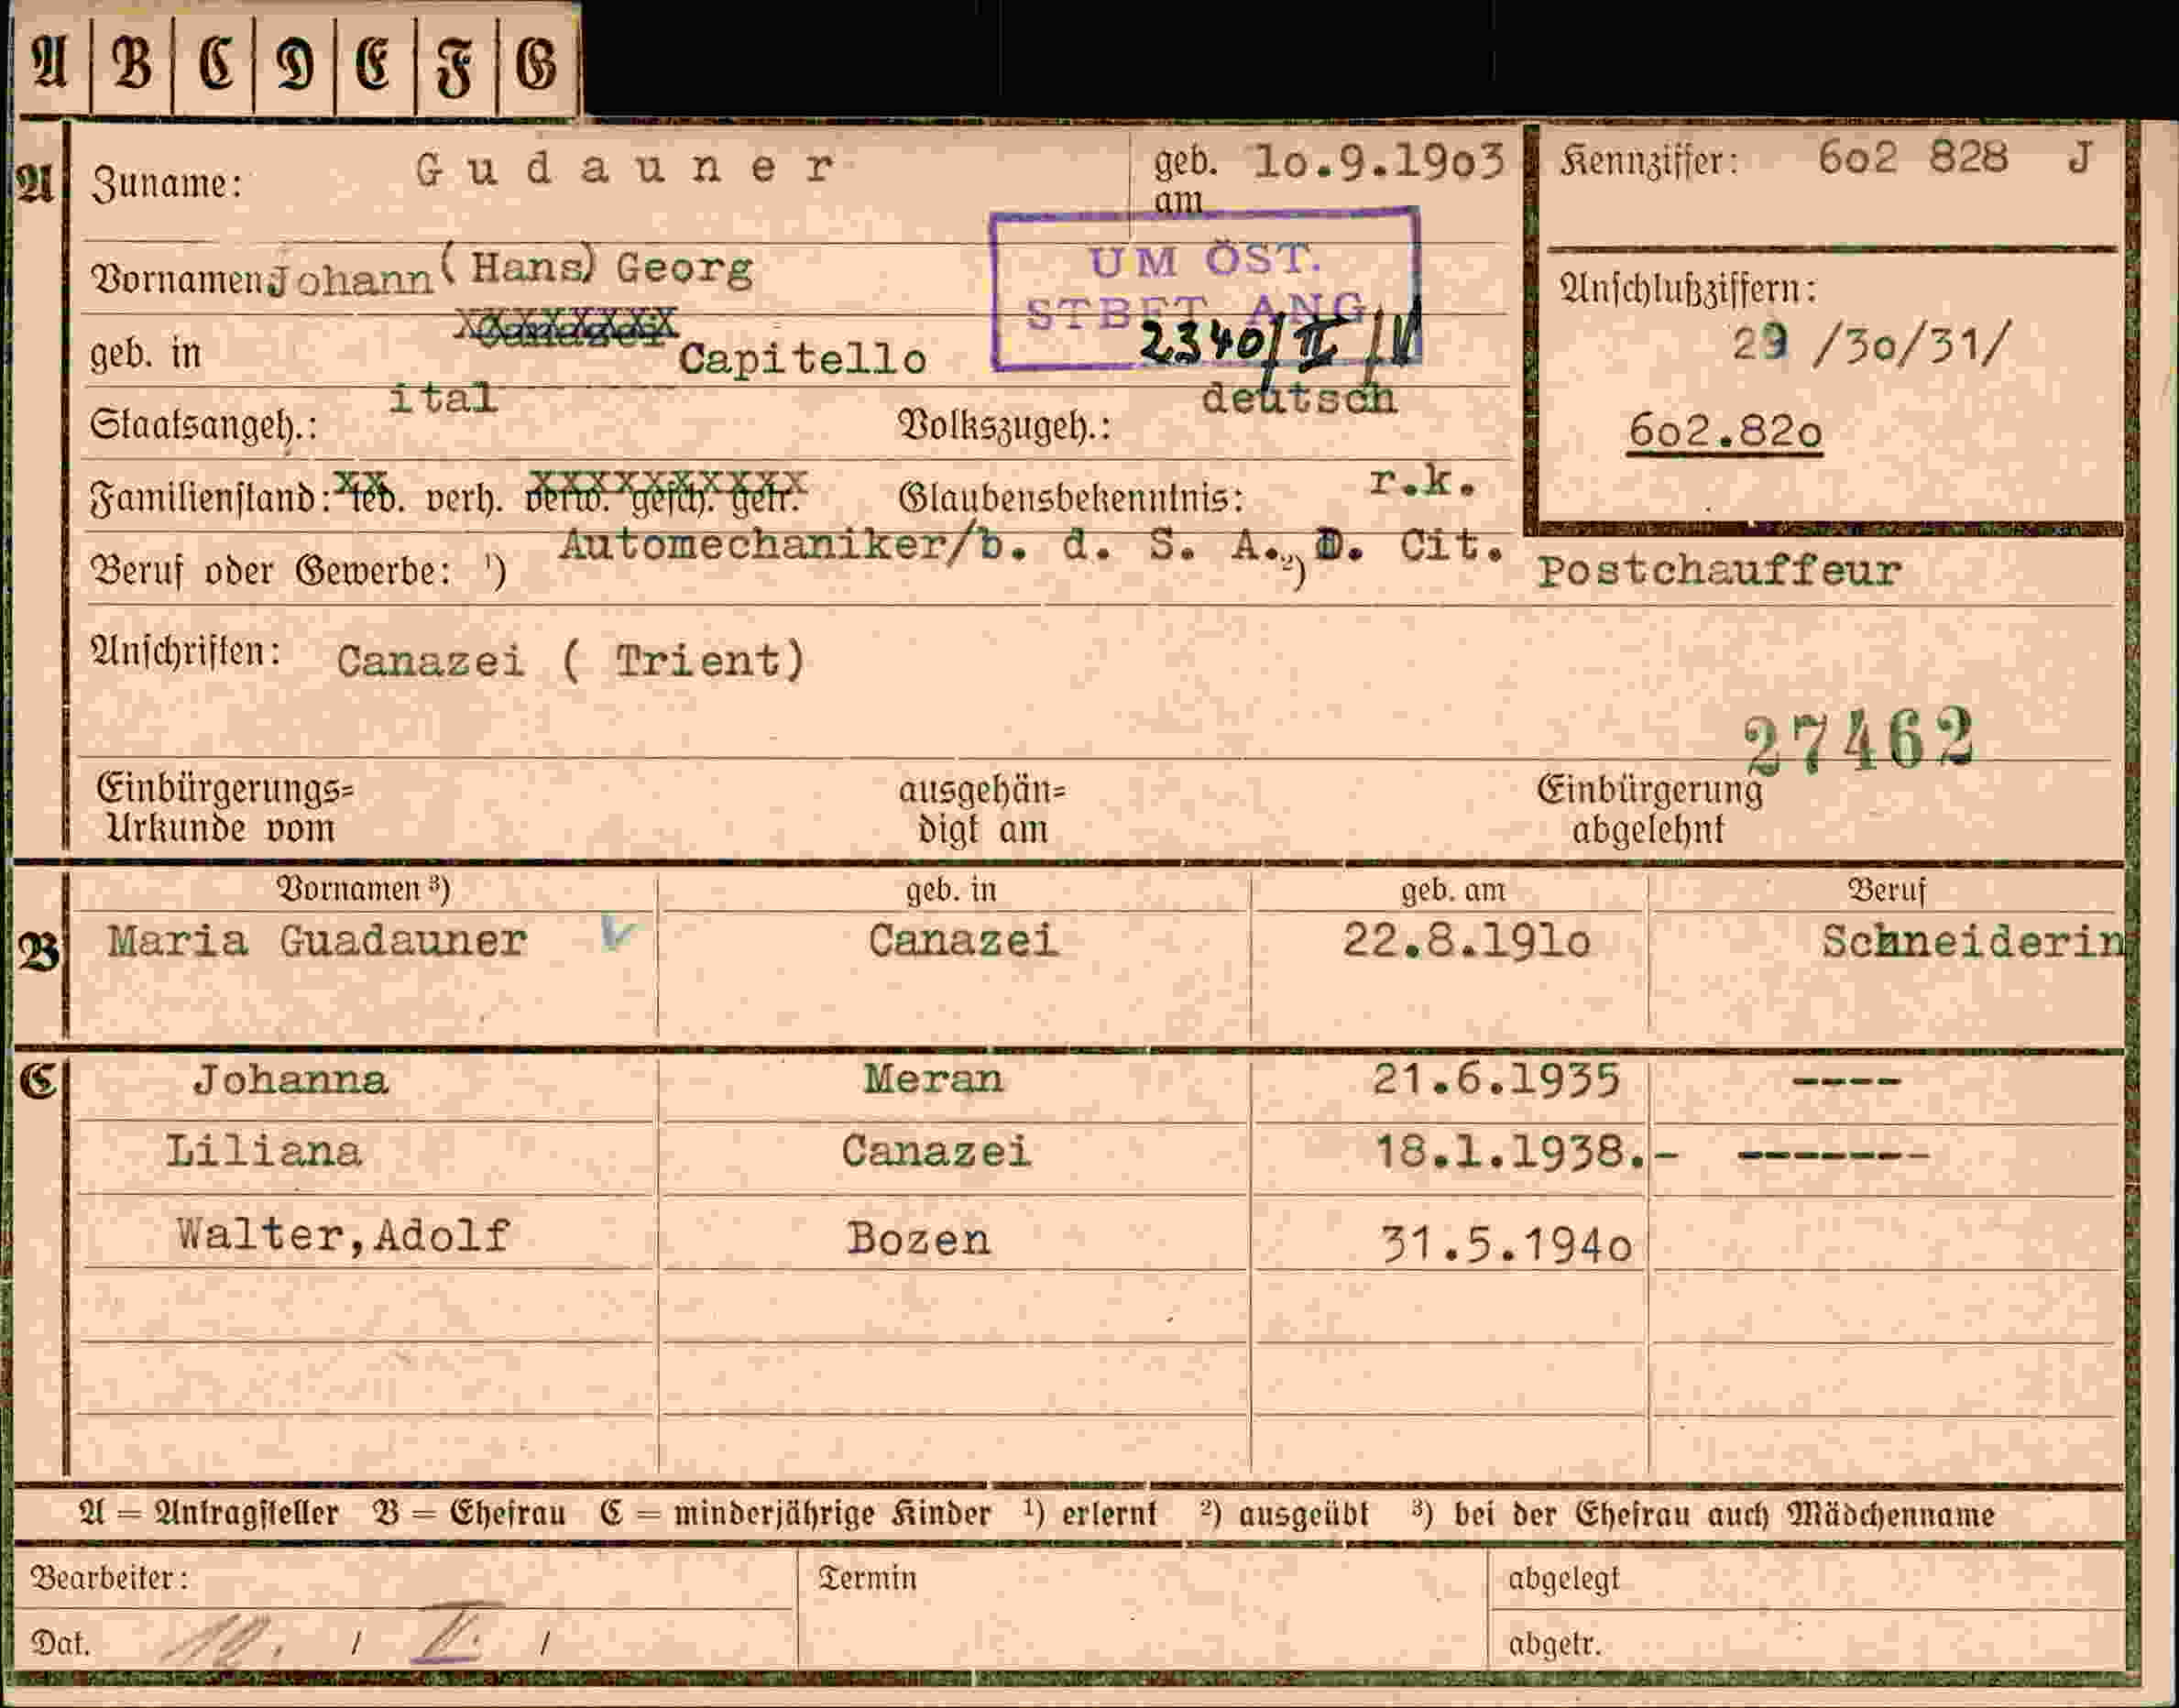 A B C D E F G
A Zuname: Gudauner geb. am 10.9.1903 Kennziffer: 602 828 J
Vornamen Johann (Hans) Georg
UM ÖST.
STBET ANG
2340/II/V
geb. in Canazei Capitello
Anschlußziffern:
29 /30/31/
602.820
Staatsangeh.: ital Volkszugeh.: deutsch
Familienstand: led. verh. verw. gesch. getr. Glaubensbekenntnis: r.k.
Beruf oder Gewerbe: ¹) Automechaniker/b. d. S. A. D. Cit. ²) Postchauffeur
Anschriften: Canazei ( Trient)
27462
Einbürgerungs= Urkunde vom ausgehän= digt am Einbürgerung abgelehnt
Vornamen ³) geb. in geb. am Beruf
B Maria Guadauner V Canazei 22.8.1910 Schneiderin
C Johanna Meran 21.6.1935 ----
Liliana Canazei 18.1.1938.- -------
Walter,Adolf Bozen 31.5.1940
A = Antragsteller B = Ehefrau C = minderjährige Kinder ¹) erlernt ²) ausgeübt ³) bei der Ehefrau auch Mädchenname
Bearbeiter: Termin abgelegt
Dat. / II. / abgetr.